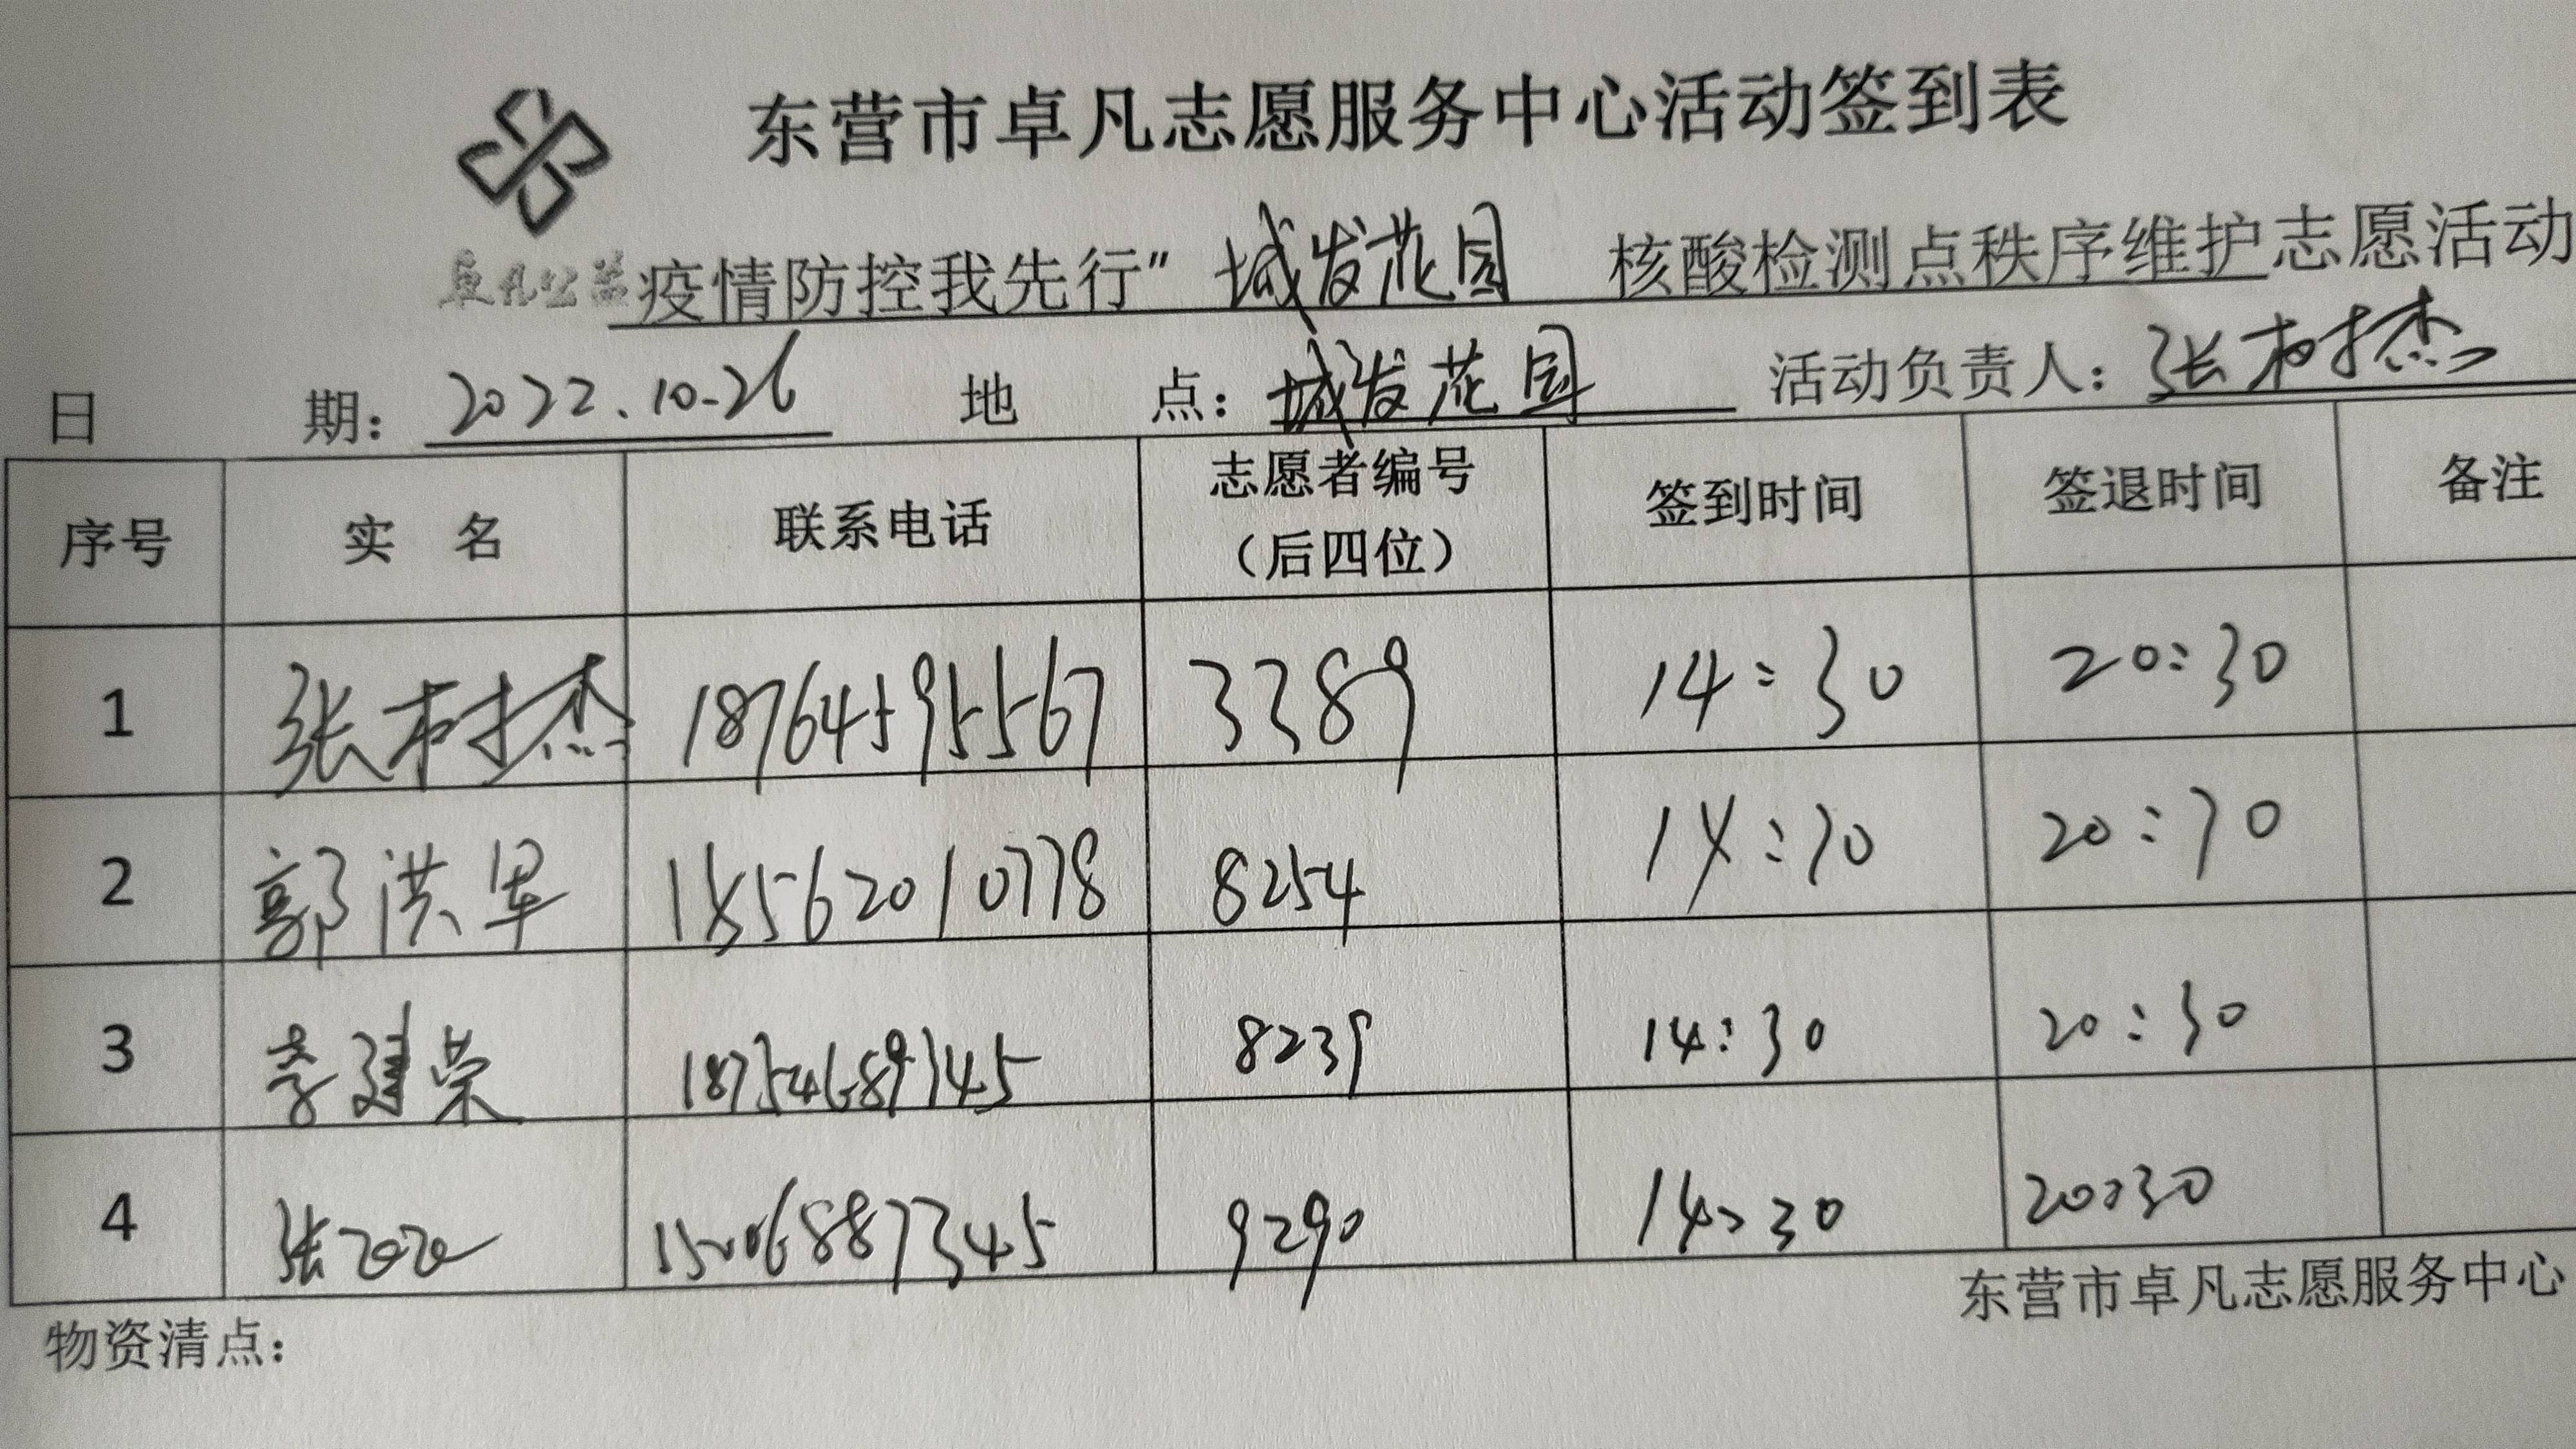 东营市卓凡志愿服务中心活动签到表
卓凡公益
疫情防控我先行” 城发花园 核酸检测点秩序维护志愿活动
日 期: 2022.10-26 地 点: 城发花园 活动负责人: 张树杰
序号 实 名 联系电话 志愿者编号(后四位) 签到时间 签退时间 备注
1 张树杰 18764595567 3389 14:30 20:30
2 郭洪军 18562010778 8254 14:30 20:30
3 李建荣 18754689345 8239 14:30 20:30
4 张 15006887345 9290 14:30 20:30
东营市卓凡志愿服务中心
物资清点: